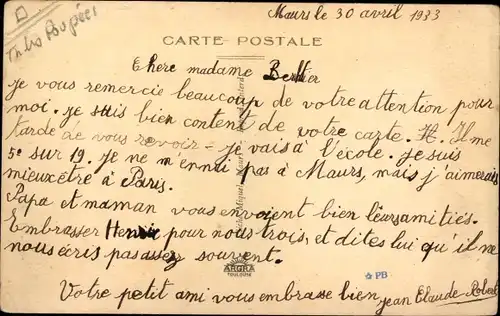 Maurs le 30 avril 1933
CARTE POSTALE
Chere madame Bellier
je vous remercie beaucoup de votre attention pour
moi. je suis bien content de votre carte. Il me
tarde de vous revoir - je vais à l'école. je suis
5e sur 19. je ne m'ennui pas à Maurs, mais j'aimerais
mieux être à Paris.
Papa et maman vous envoient bien leurs amitiés.
Embrasser Henri pour nous trois, et dites lui qu'il ne
nous écris pas assez souvent.
ARGRA
TOULOUSE
PB
Votre petit ami vous embrasse bien jean Claude-Robert